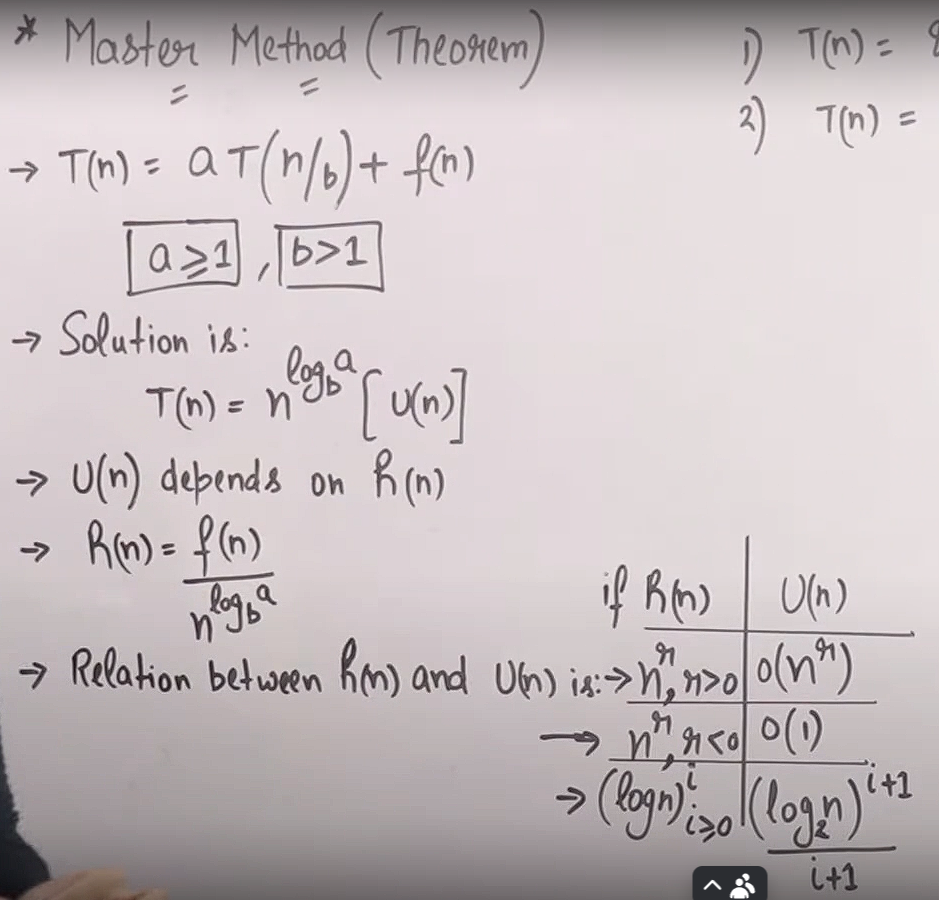 * Master Method (Theorem)
→ T(n) = a T(n/b) + f(n)
a ≥ 1 , b > 1
→ Solution is:
T(n) = n^(log_b a) [U(n)]
→ U(n) depends on h(n)
→ h(n) = f(n) / n^(log_b a)
→ Relation between h(n) and U(n) is:
if h(n) | U(n)
→ n^r, r>0 | O(n^r)
→ n^r, r<0 | O(1)
→ (log n)^i i≥0 | (log₂n)^(i+1) / i+1
1) T(n) =
2) T(n) =